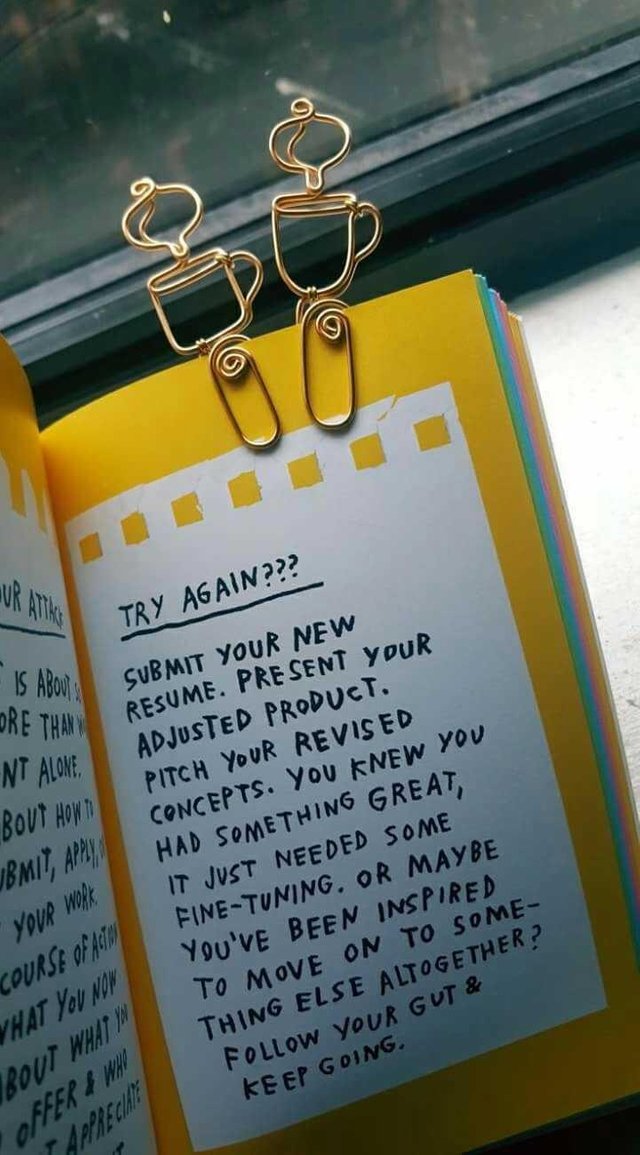 UR ATTACK
IS ABOUT
ORE THAN
NT ALONE.
ABOUT HOW TO
UBMIT, APPLY,
YOUR WORK.
COURSE OF ACTION
WHAT YOU NOW
ABOUT WHAT YOU
OFFER & WHO
T APPRECIATE
TRY AGAIN???
SUBMIT YOUR NEW
RESUME. PRESENT YOUR
ADJUSTED PRODUCT.
PITCH YOUR REVISED
CONCEPTS. YOU KNEW YOU
HAD SOMETHING GREAT,
IT JUST NEEDED SOME
FINE-TUNING. OR MAYBE
YOU'VE BEEN INSPIRED
TO MOVE ON TO SOME-
THING ELSE ALTOGETHER?
FOLLOW YOUR GUT &
KEEP GOING.